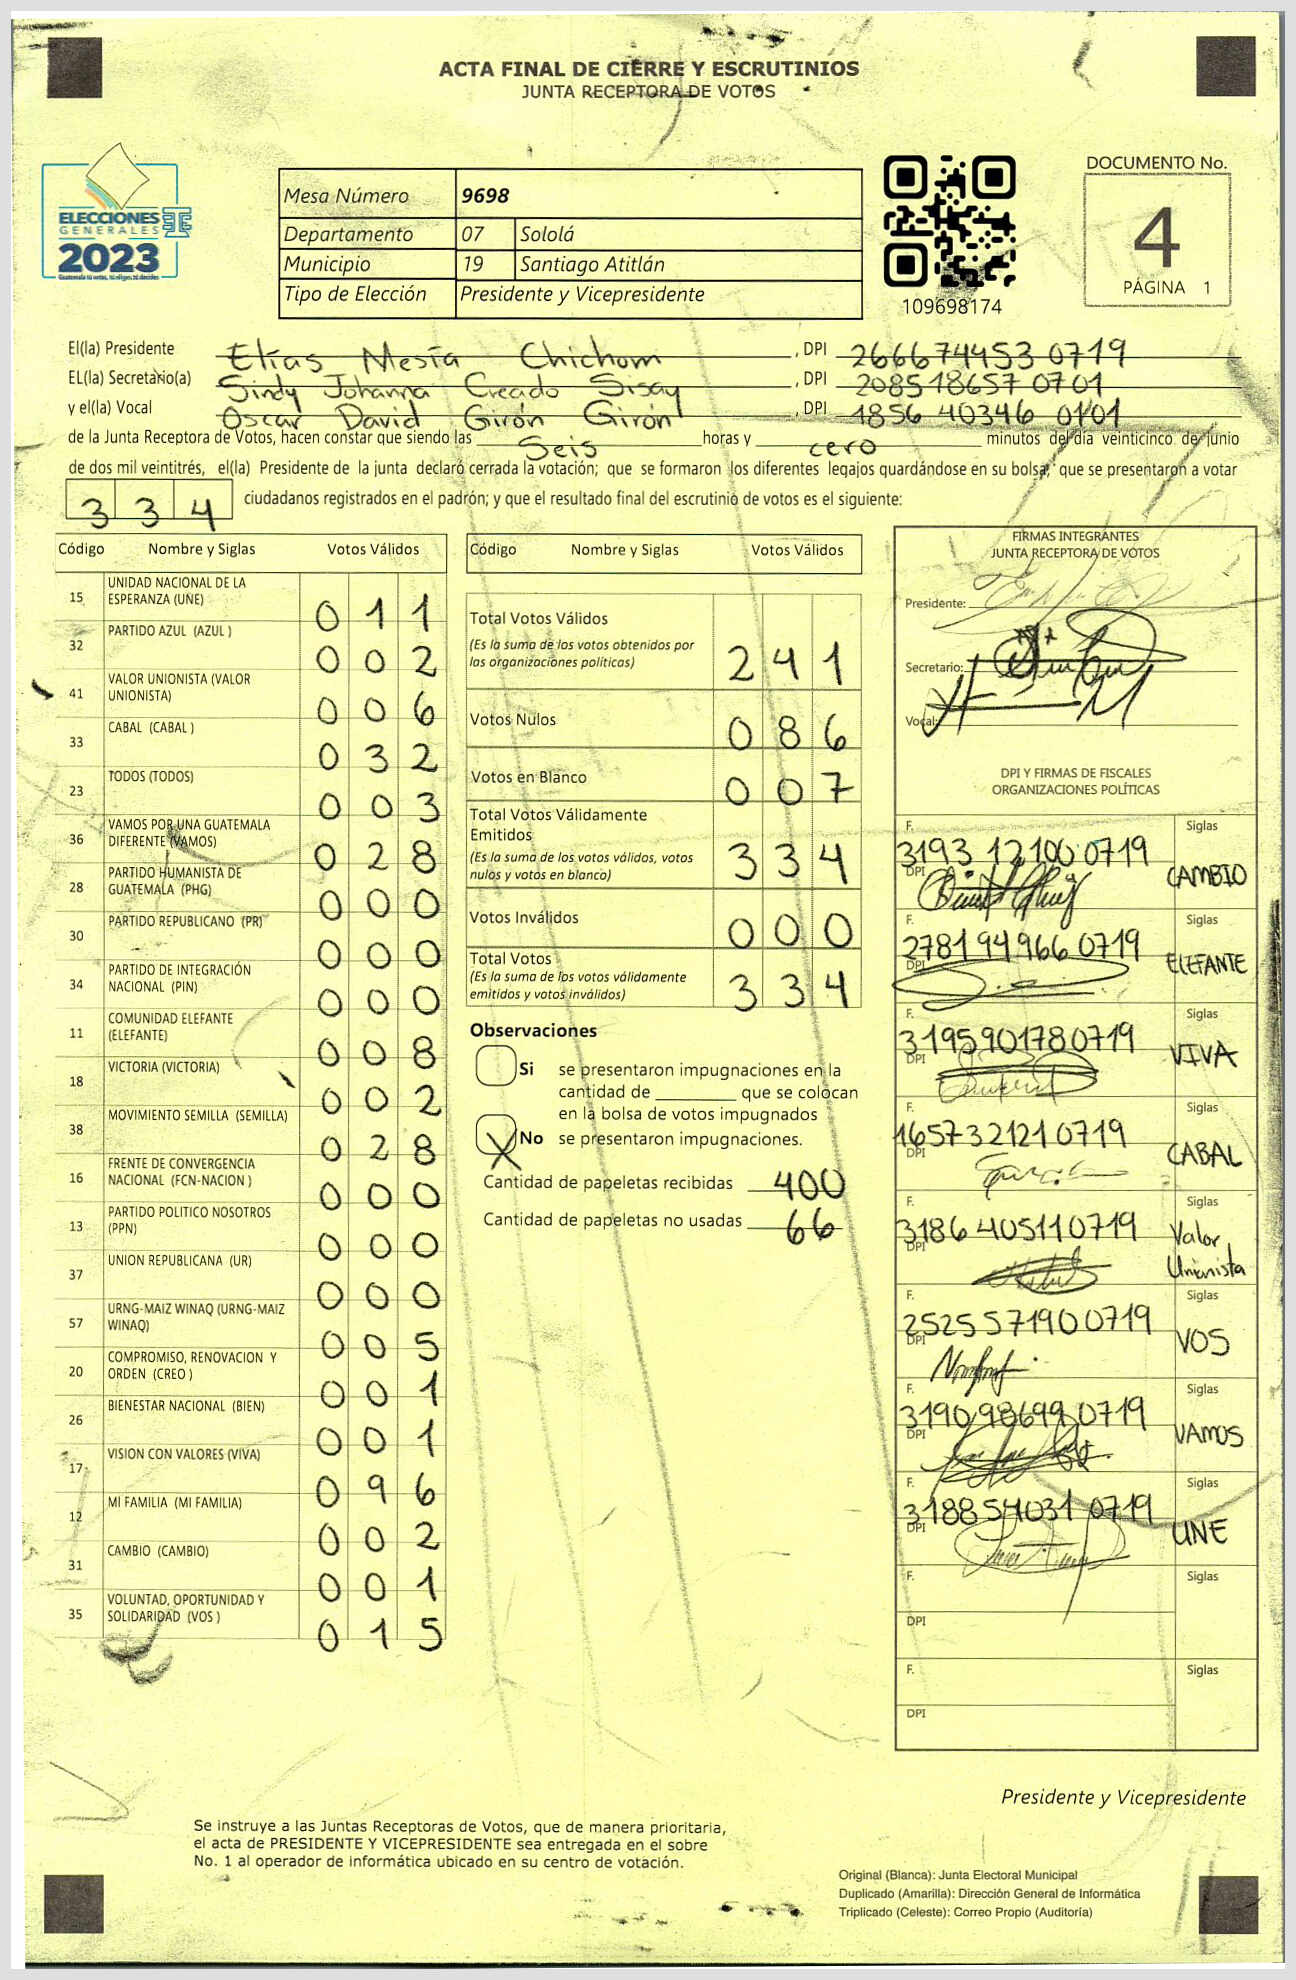 ACTA FINAL DE CIERRE Y ESCRUTINIOS
JUNTA RECEPTORA DE VOTOS
ELECCIONES
GENERALES
2023
Mesa Número 9698
Departamento 07 Sololá
Municipio 19 Santiago Atitlán
Tipo de Elección Presidente y Vicepresidente
109698174
DOCUMENTO No.
4
PÁGINA 1
El(la) Presidente Elías Mesía Chichom, DPI 266674453 0719
EL(la) Secretario(a) Sindy Johanna Creado Sisay, DPI 2085 18657 0701
y el(la) Vocal Oscar David Girón Girón, DPI 1856 40346 0101
de la Junta Receptora de Votos, hacen constar que siendo las Seis horas y cero minutos del día veinticinco de junio
de dos mil veintitrés, el(la) Presidente de la junta declaró cerrada la votación; que se formaron los diferentes legajos guardándose en su bolsa; que se presentaron a votar
334 ciudadanos registrados en el padrón; y que el resultado final del escrutinio de votos es el siguiente:
Código Nombre y Siglas Votos Válidos
15 UNIDAD NACIONAL DE LA ESPERANZA (UNE) 011
32 PARTIDO AZUL (AZUL ) 002
41 VALOR UNIONISTA (VALOR UNIONISTA) 006
33 CABAL (CABAL ) 032
23 TODOS (TODOS) 003
36 VAMOS POR UNA GUATEMALA DIFERENTE (VAMOS) 028
28 PARTIDO HUMANISTA DE GUATEMALA (PHG) 000
30 PARTIDO REPUBLICANO (PR) 000
34 PARTIDO DE INTEGRACIÓN NACIONAL (PIN) 000
11 COMUNIDAD ELEFANTE (ELEFANTE) 008
18 VICTORIA (VICTORIA) 002
38 MOVIMIENTO SEMILLA (SEMILLA) 028
16 FRENTE DE CONVERGENCIA NACIONAL (FCN-NACION ) 000
13 PARTIDO POLITICO NOSOTROS (PPN) 000
37 UNION REPUBLICANA (UR) 000
57 URNG-MAIZ WINAQ (URNG-MAIZ WINAQ) 005
20 COMPROMISO, RENOVACION Y ORDEN (CREO ) 001
26 BIENESTAR NACIONAL (BIEN) 001
17 VISION CON VALORES (VIVA) 096
12 MI FAMILIA (MI FAMILIA) 002
31 CAMBIO (CAMBIO) 001
35 VOLUNTAD, OPORTUNIDAD Y SOLIDARIDAD (VOS ) 015
Código Nombre y Siglas Votos Válidos
Total Votos Válidos 241
(Es la suma de los votos obtenidos por
las organizaciones políticas)
Votos Nulos 086
Votos en Blanco 007
Total Votos Válidamente
Emitidos 334
(Es la suma de los votos válidos, votos
nulos y votos en blanco)
Votos Inválidos 000
Total Votos 334
(Es la suma de los votos válidamente
emitidos y votos inválidos)
Observaciones
Si se presentaron impugnaciones en la
cantidad de ________ que se colocan
en la bolsa de votos impugnados
X No se presentaron impugnaciones.
Cantidad de papeletas recibidas 400
Cantidad de papeletas no usadas 66
FIRMAS INTEGRANTES
JUNTA RECEPTORA DE VOTOS
Presidente:
Secretario:
Vocal:
DPI Y FIRMAS DE FISCALES
ORGANIZACIONES POLÍTICAS
F. Siglas
3193 12100 0719
DPI CAMBIO
F. Siglas
2781 94966 0719
DPI ELEFANTE
F. Siglas
3195901780719
DPI VIVA
F. Siglas
1657321210719
DPI CABAL
F. Siglas
3186 40511 0719
DPI Valor Unionista
F. Siglas
2525 57190 0719
DPI VOS
F. Siglas
3190 98699 0719
DPI VAMOS
F. Siglas
3188 54031 0719
DPI UNE
F. Siglas
DPI
F. Siglas
DPI
Presidente y Vicepresidente
Se instruye a las Juntas Receptoras de Votos, que de manera prioritaria,
el acta de PRESIDENTE Y VICEPRESIDENTE sea entregada en el sobre
No. 1 al operador de informática ubicado en su centro de votación.
Original (Blanca): Junta Electoral Municipal
Duplicado (Amarilla): Dirección General de Informática
Triplicado (Celeste): Correo Propio (Auditoría)